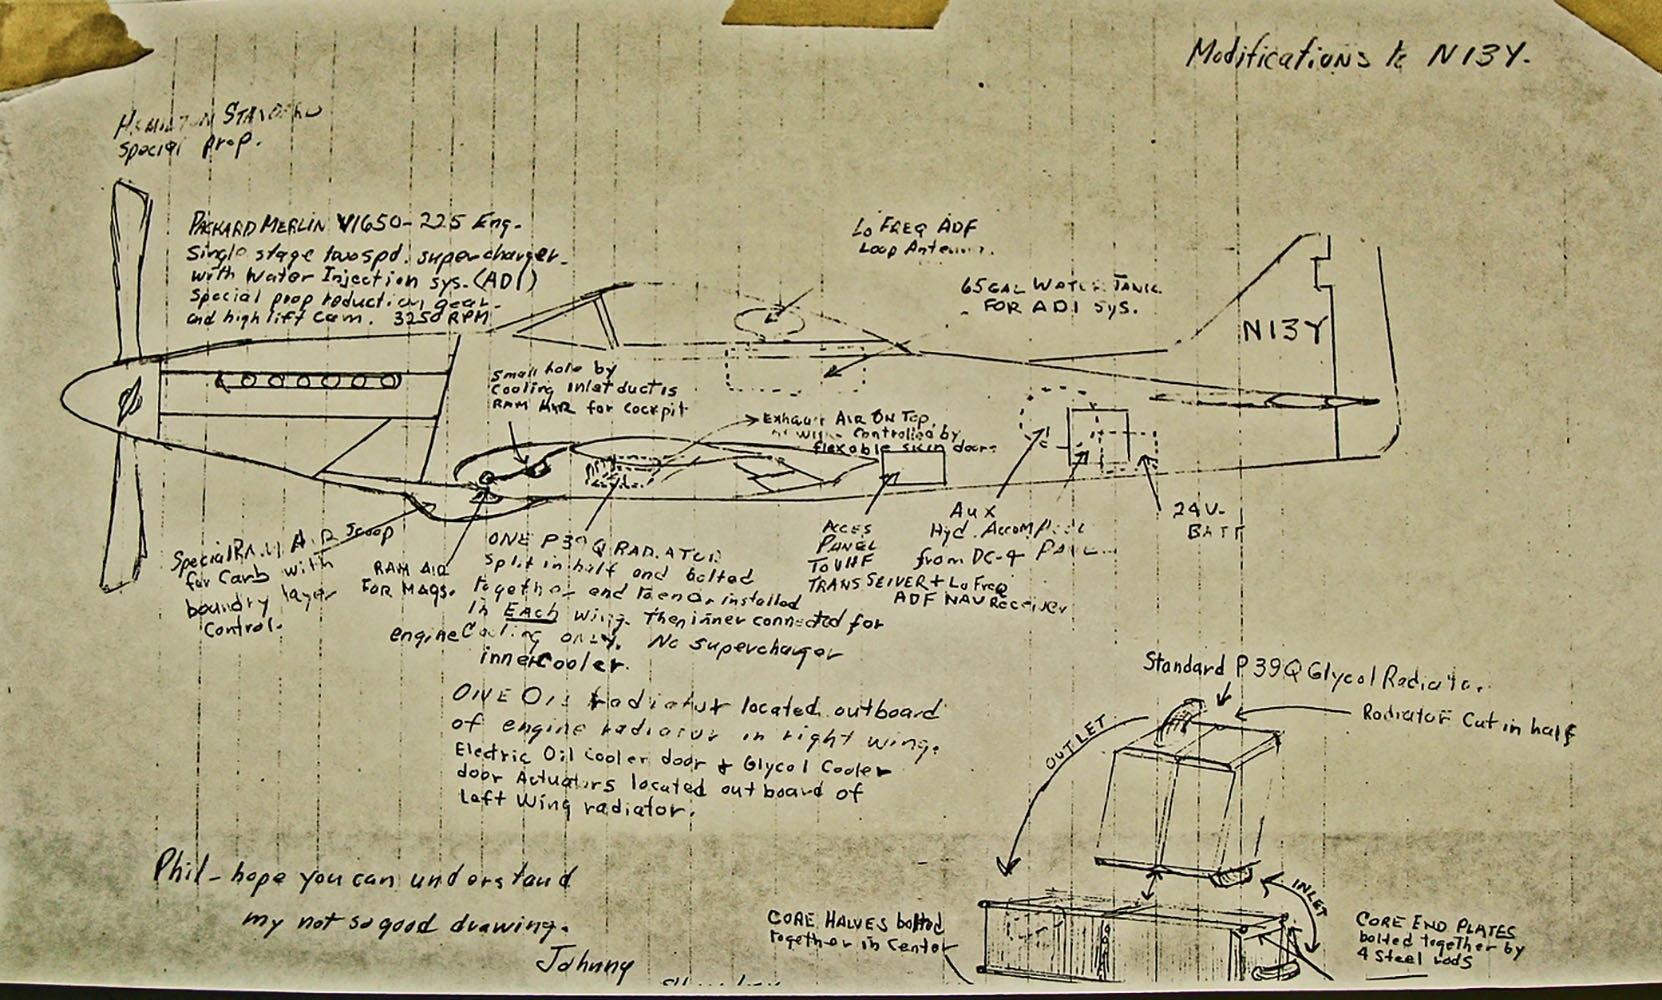 Modifications to N13Y.
HAMILTON STANDARD
special prop.
PACKARD MERLIN V1650-225 Eng.
Single stage two spd. supercharger.
with Water Injection sys. (ADI)
Special prop reduction gear.
and high lift cam. 3250 RPM
Lo FREQ ADF
Loop Antenna.
65 GAL WATER TANK
FOR ADI SYS.
N13Y
Small hole by
cooling inlet duct is
RAM AIR for cockpit
Exhaust AIR ON Top
controlled by
flexable skin door.
Special RAM AIR Scoop
for Carb with
boundry layer
Control.
RAM AIR
FOR MAGS.
ONE P39Q RADIATOR
split in half and bolted
together and installed
in EACH wing. Then inner connected for
engine Cooling ONLY. No supercharger
innercooler.
ACES
PANEL
TO VHF
TRANSSEIVER + Lo Freq
ADF NAV Receiver
Aux
Hyd.
from DC-4
24V-
BATT
ONE OIL radiator located outboard
of engine radiator in right wing.
Electric Oil cooler door + Glycol Cooler
door Actuators located outboard of
Left Wing radiator.
Standard P39Q Glycol Radiator.
Radiator Cut in half
OUTLET
INLET
CORE HALVES bolted
together in Center
CORE END PLATES
bolted together by
4 steel rods
Phil - hope you can understand
my not so good drawing.
Johnny